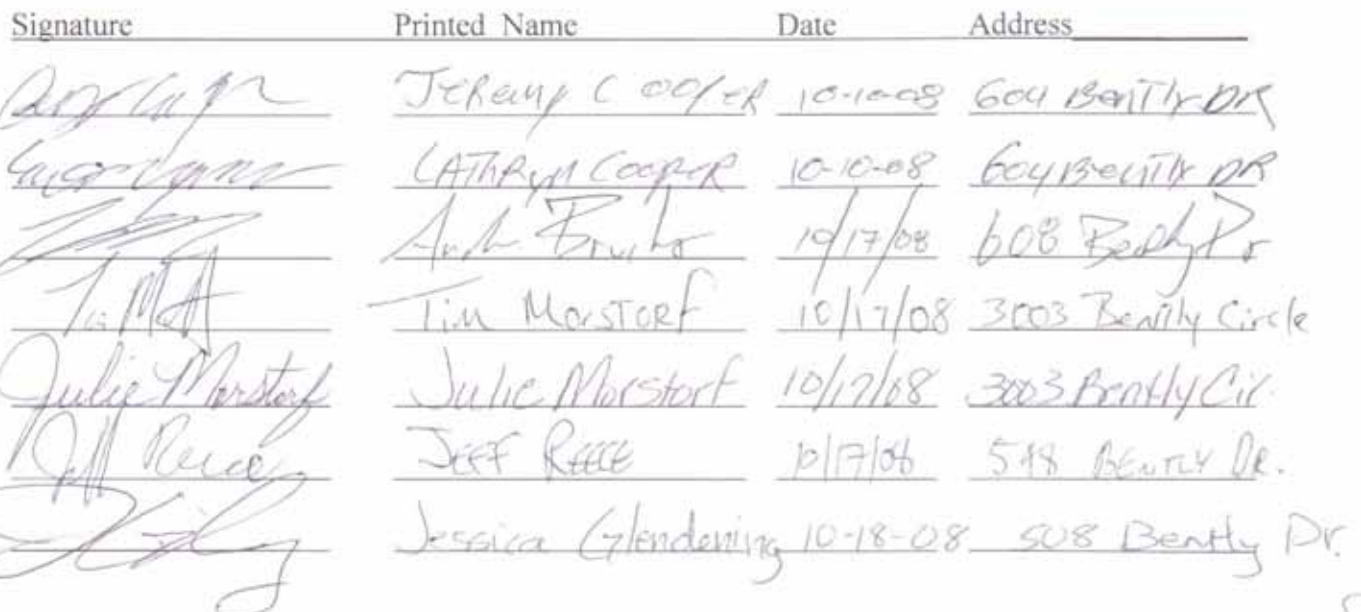 Signature Printed Name Date Address
Jeremy Cooper 10-10-08 604 Bently DR
CAThRyn CoopeR 10-10-08 604 Bently DR
10/17/08 608 Bently Dr
Tim Morstorf 10/17/08 3003 Bently Circle
Julie Morstorf Julie Morstorf 10/17/08 3003 Bently Cir.
Jeff Reece JEFF REECE 10/17/08 548 BENTLY DR.
Jessica Glendening 10-18-08 508 Bently Dr.